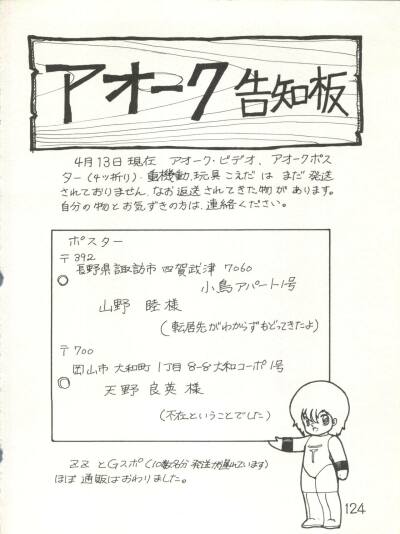 アオーク告知板
4月13日現在 アオーク・ビデオ、アオークポス
ター(4ッ折り)・重機動、玩具 こえだ は まだ 発送
されておりません。なお返送されてきた物が あります。
自分の物とお気ずきの方は、連絡ください。
ポスター
〒392
長野県諏訪市 四賀武津 7060
小鳥アパート1号
山野 睦 様
(転居先がわからずもどってきたよ)
〒700
岡山市 大和町 1丁目 8-8 大和コーポ1号
天野 良英 様
(不在ということでした)
ZZ とGスポ(10数名分 発送が遅れています)
ほぼ 通販はおわりました。
124